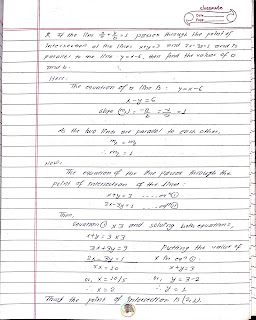 classmate
Date
Page
Q. If the line x/a + y/b = 1 passes through the point of
intersection of the lines x+y=3 and 2x-3y=1 and is
parallel to the line y=x-6, then find the value of a
and b.
Here,
The equation of a line is: y=x-6
x-y=6
slope (m₁) = -a/b = -1/-1 = 1
As the two lines are parallel to each other,
m₁ = m₂
∴ m₂ = 1
Now,
The equation of the line passes through the
point of intersection of the lines:
x+y=3 ..... eqⁿ ①
2x-3y=1 .... eqⁿ ②
Then,
equation ① x3 and solving both equations,
x+y=3 x3
3x+3y=9 Putting the value of
2x-3y=1 x in eqⁿ ①.
5x=10 x+y=3
or, x=10/5 or, y=3-2
∴ x=2 ∴ y=1
Thus the point of intersection is (2,1).